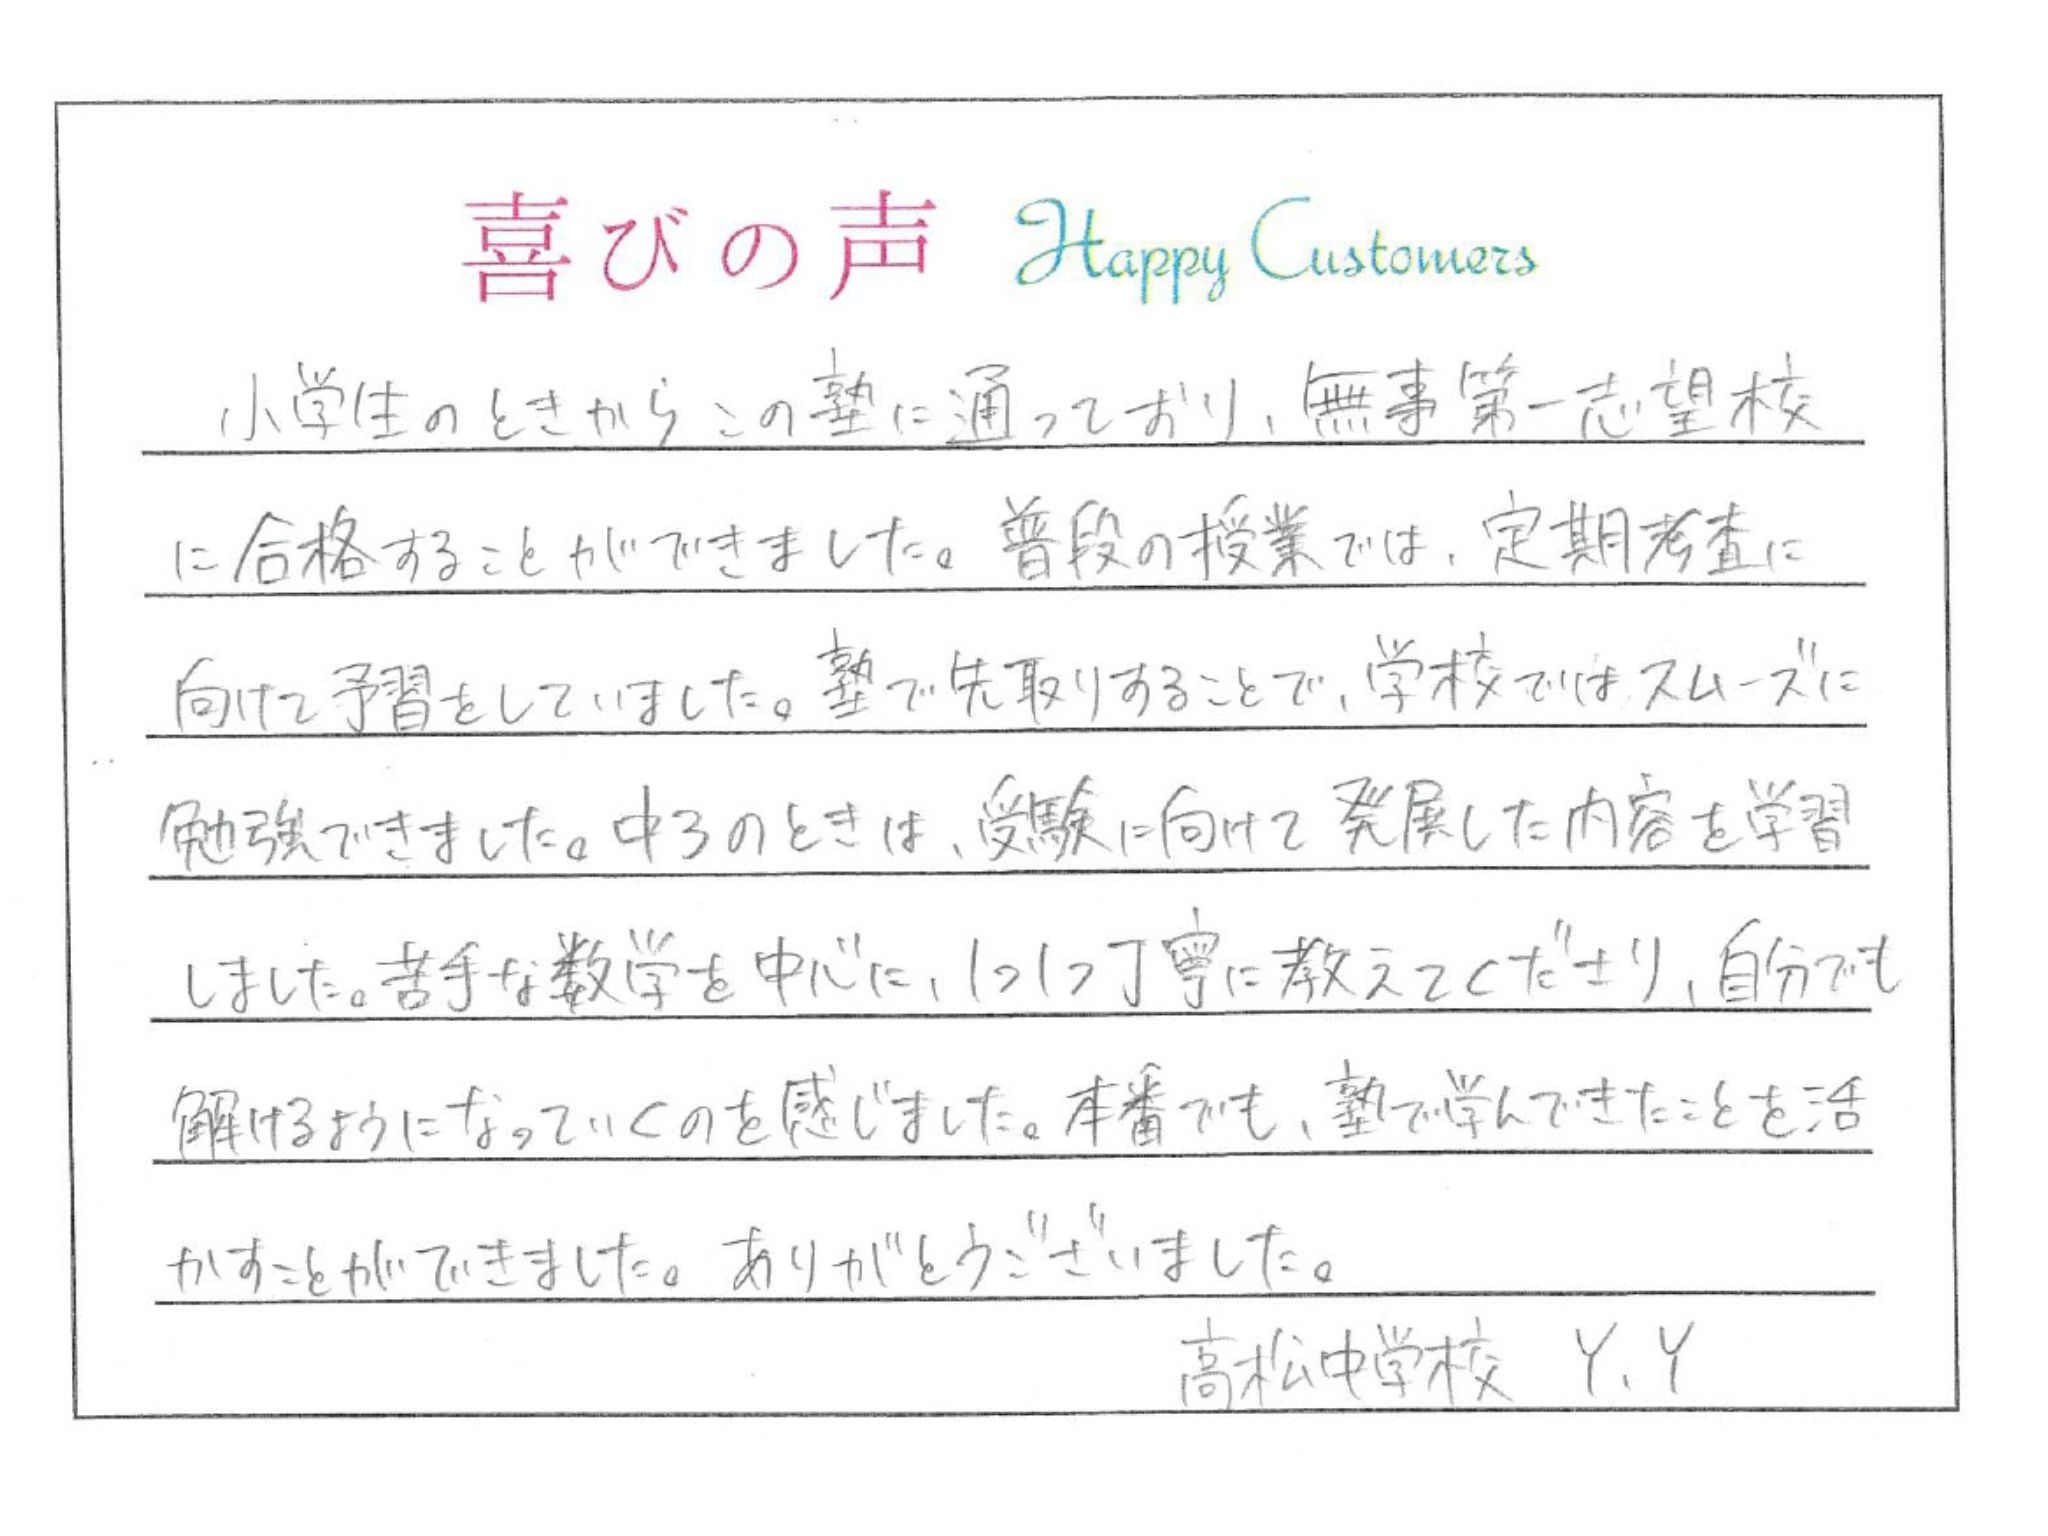 喜びの声 Happy Customers
小学生のときからこの塾に通っており、無事第一志望校
に合格することができました。普段の授業では、定期考査に
向けて予習をしていました。塾で先取りすることで、学校ではスムーズに
勉強できました。中3のときは、受験に向けて発展した内容を学習
しました。苦手な数学を中心に、1つ1つ丁寧に教えてくださり、自分でも
解けるようになっていくのを感じました。本番でも、塾で学んできたことを活
かすことができました。ありがとうございました。
高松中学校 Y.Y